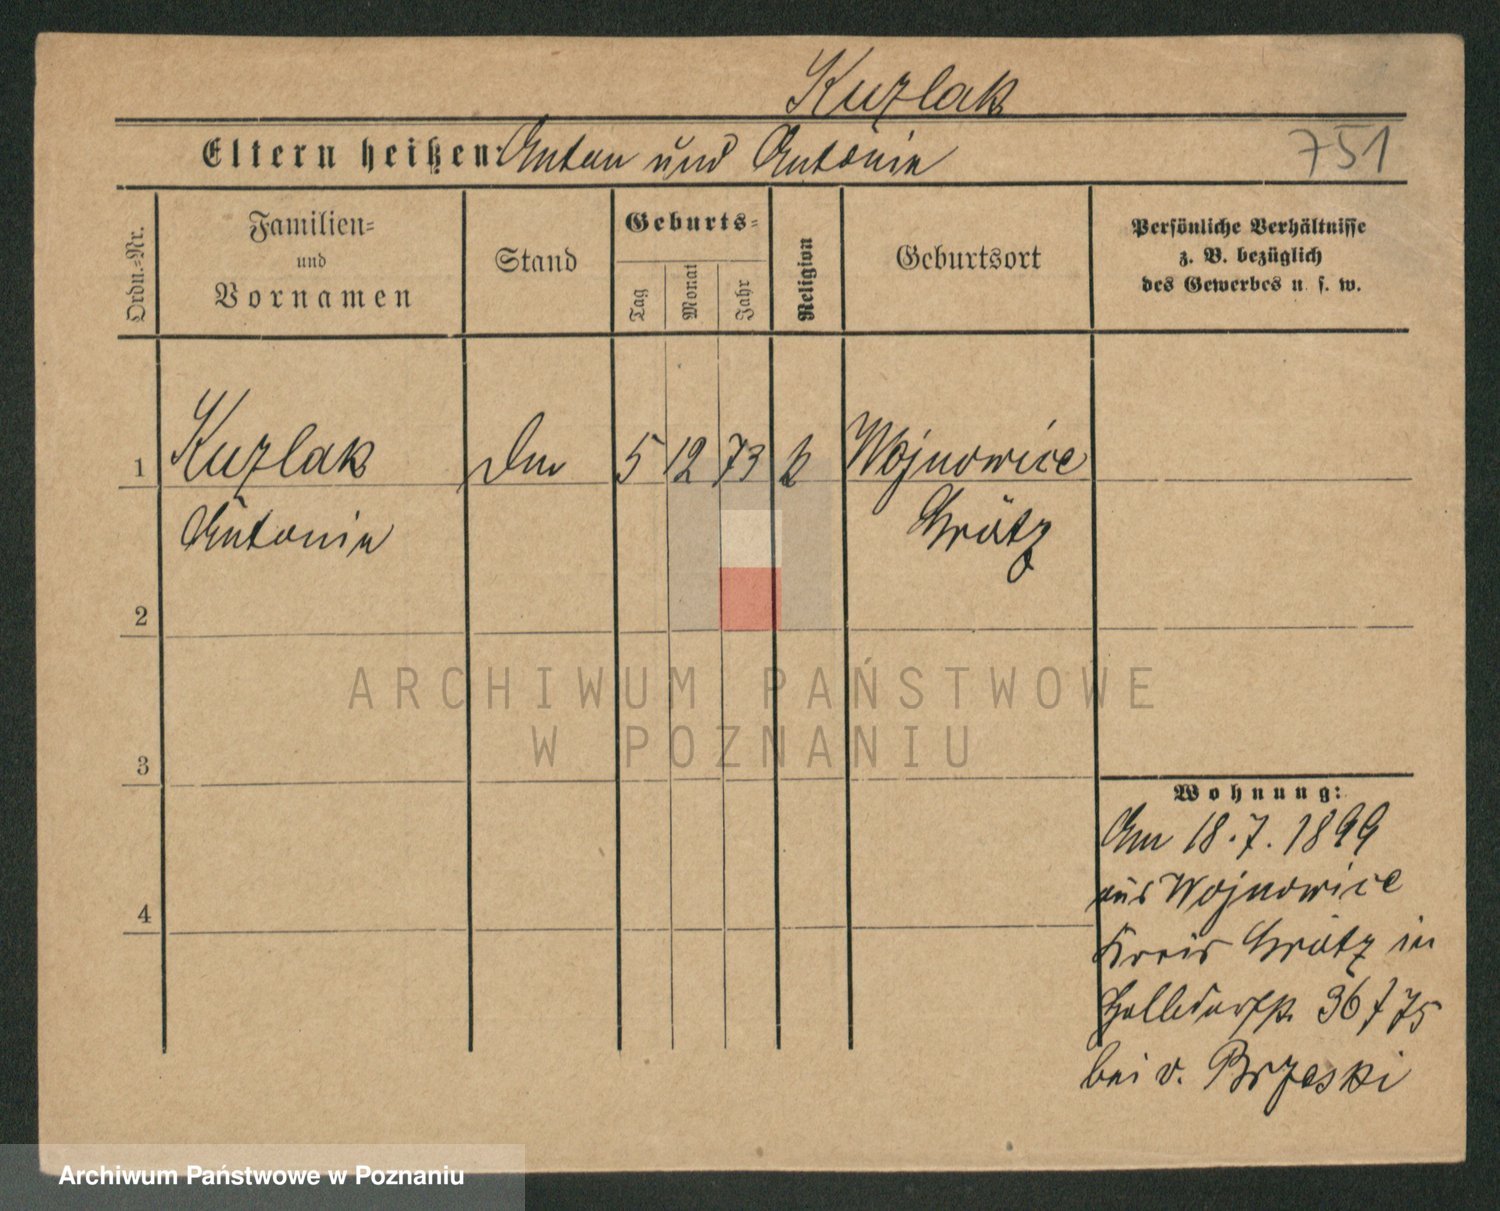 Kuzlak
Eltern heißen: Anton und Antonie
751
Ordn.-Nr.
Familien= und Vornamen
Stand
Geburts=
Tag
Monat
Jahr
Religion
Geburtsort
Persönliche Verhältnisse
z. B. bezüglich
des Gewerbes u. s. w.
1
Kuzlak
5 12 73 k
Wojnowice
Antonie
Grätz
2
3
4
ARCHIWUM PAŃSTWOWE
W POZNANIU
Wohnung:
Am 18.7.1899
aus Wojnowice
Kreis Grätz in
36 75
bei v. Brzeski
Archiwum Państwowe w Poznaniu